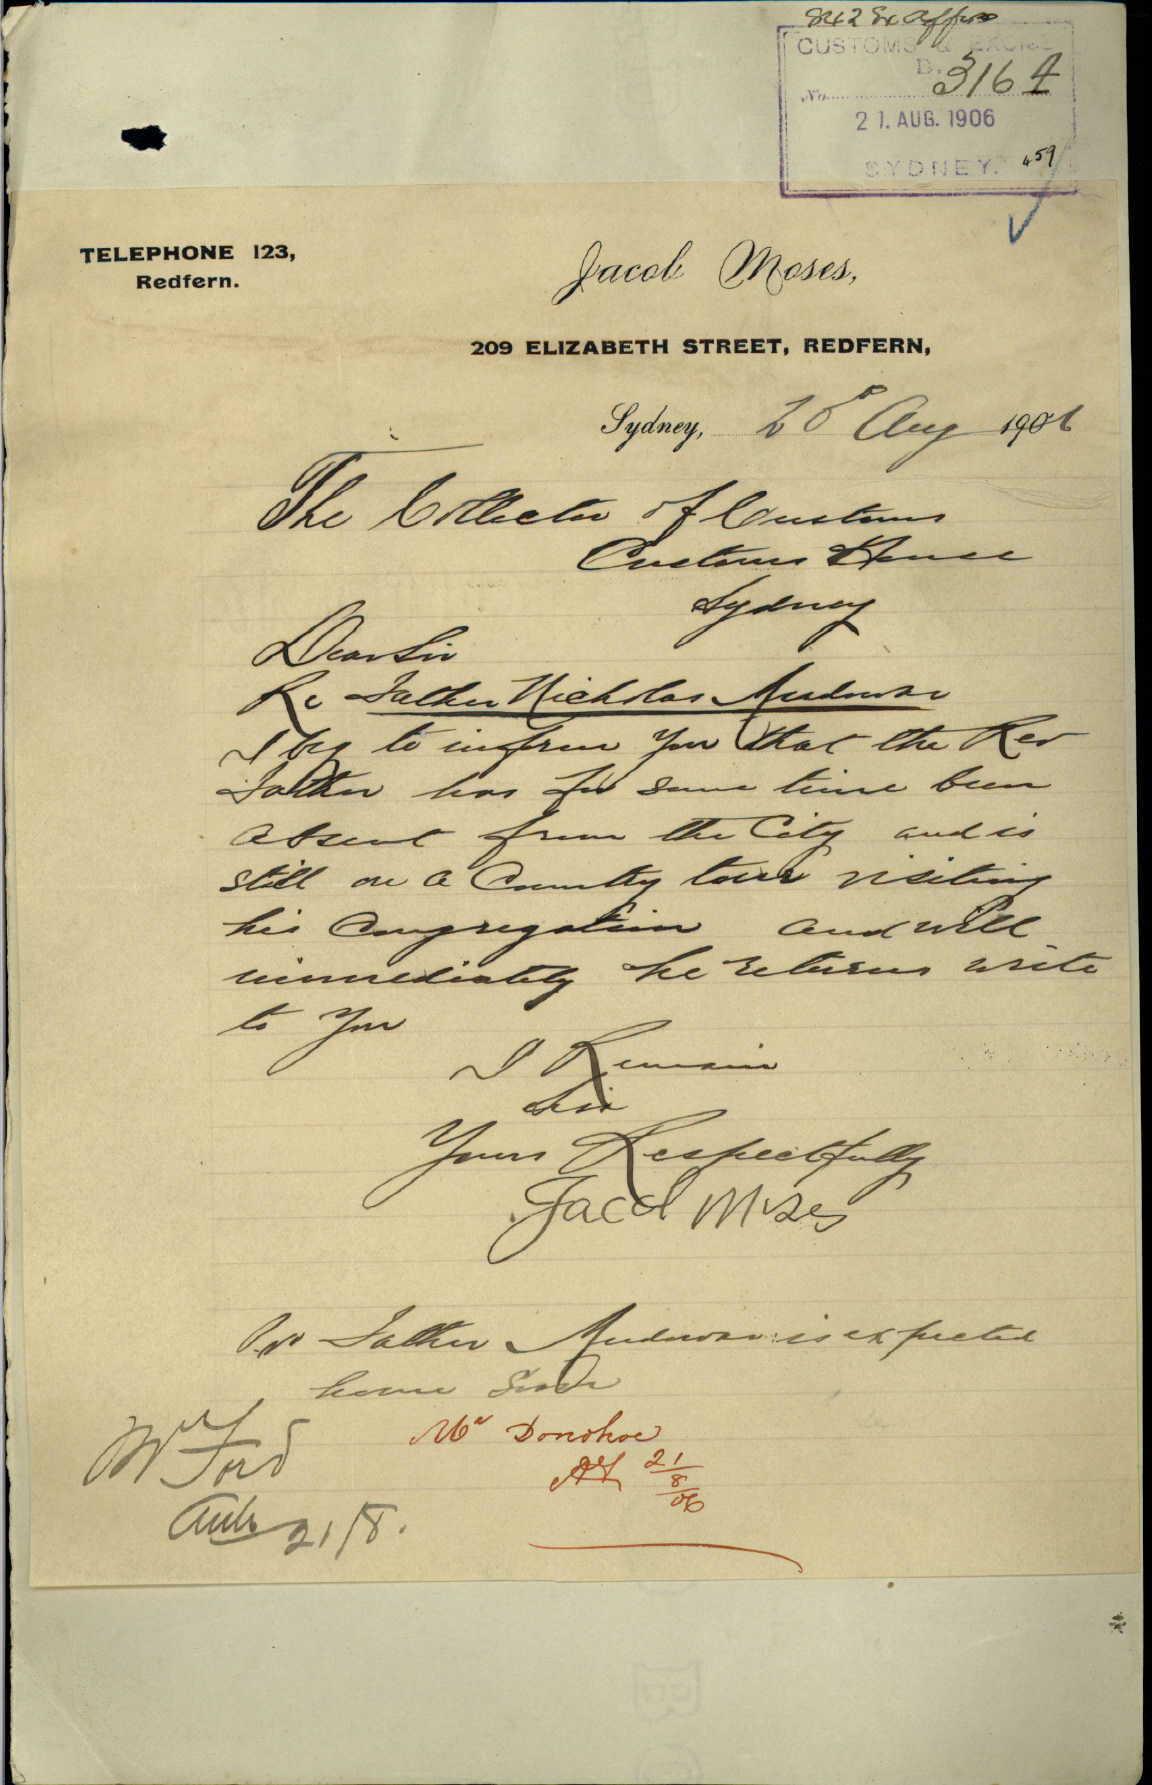 CUSTOMS & EXCISE
No. 3164
21. AUG. 1906
SYDNEY. 459
TELEPHONE 123,
Redfern.
Jacob Moses,
209 ELIZABETH STREET, REDFERN,
Sydney, 20 Aug 1906
The Collector of Customs
Customs House
Sydney
Dear Sir
Re Father Nicholas
I beg to inform you that the Rev
Father has for some time been
absent from the City and is
still on a Country tour visiting
his Congregation and will
immediately he returns write
to you
I Remain
Sir
Yours Respectfully
Jacob Moses
Father is expected
home soon
Mr Ford
21/8.
Mr Donohoe
21/8/06